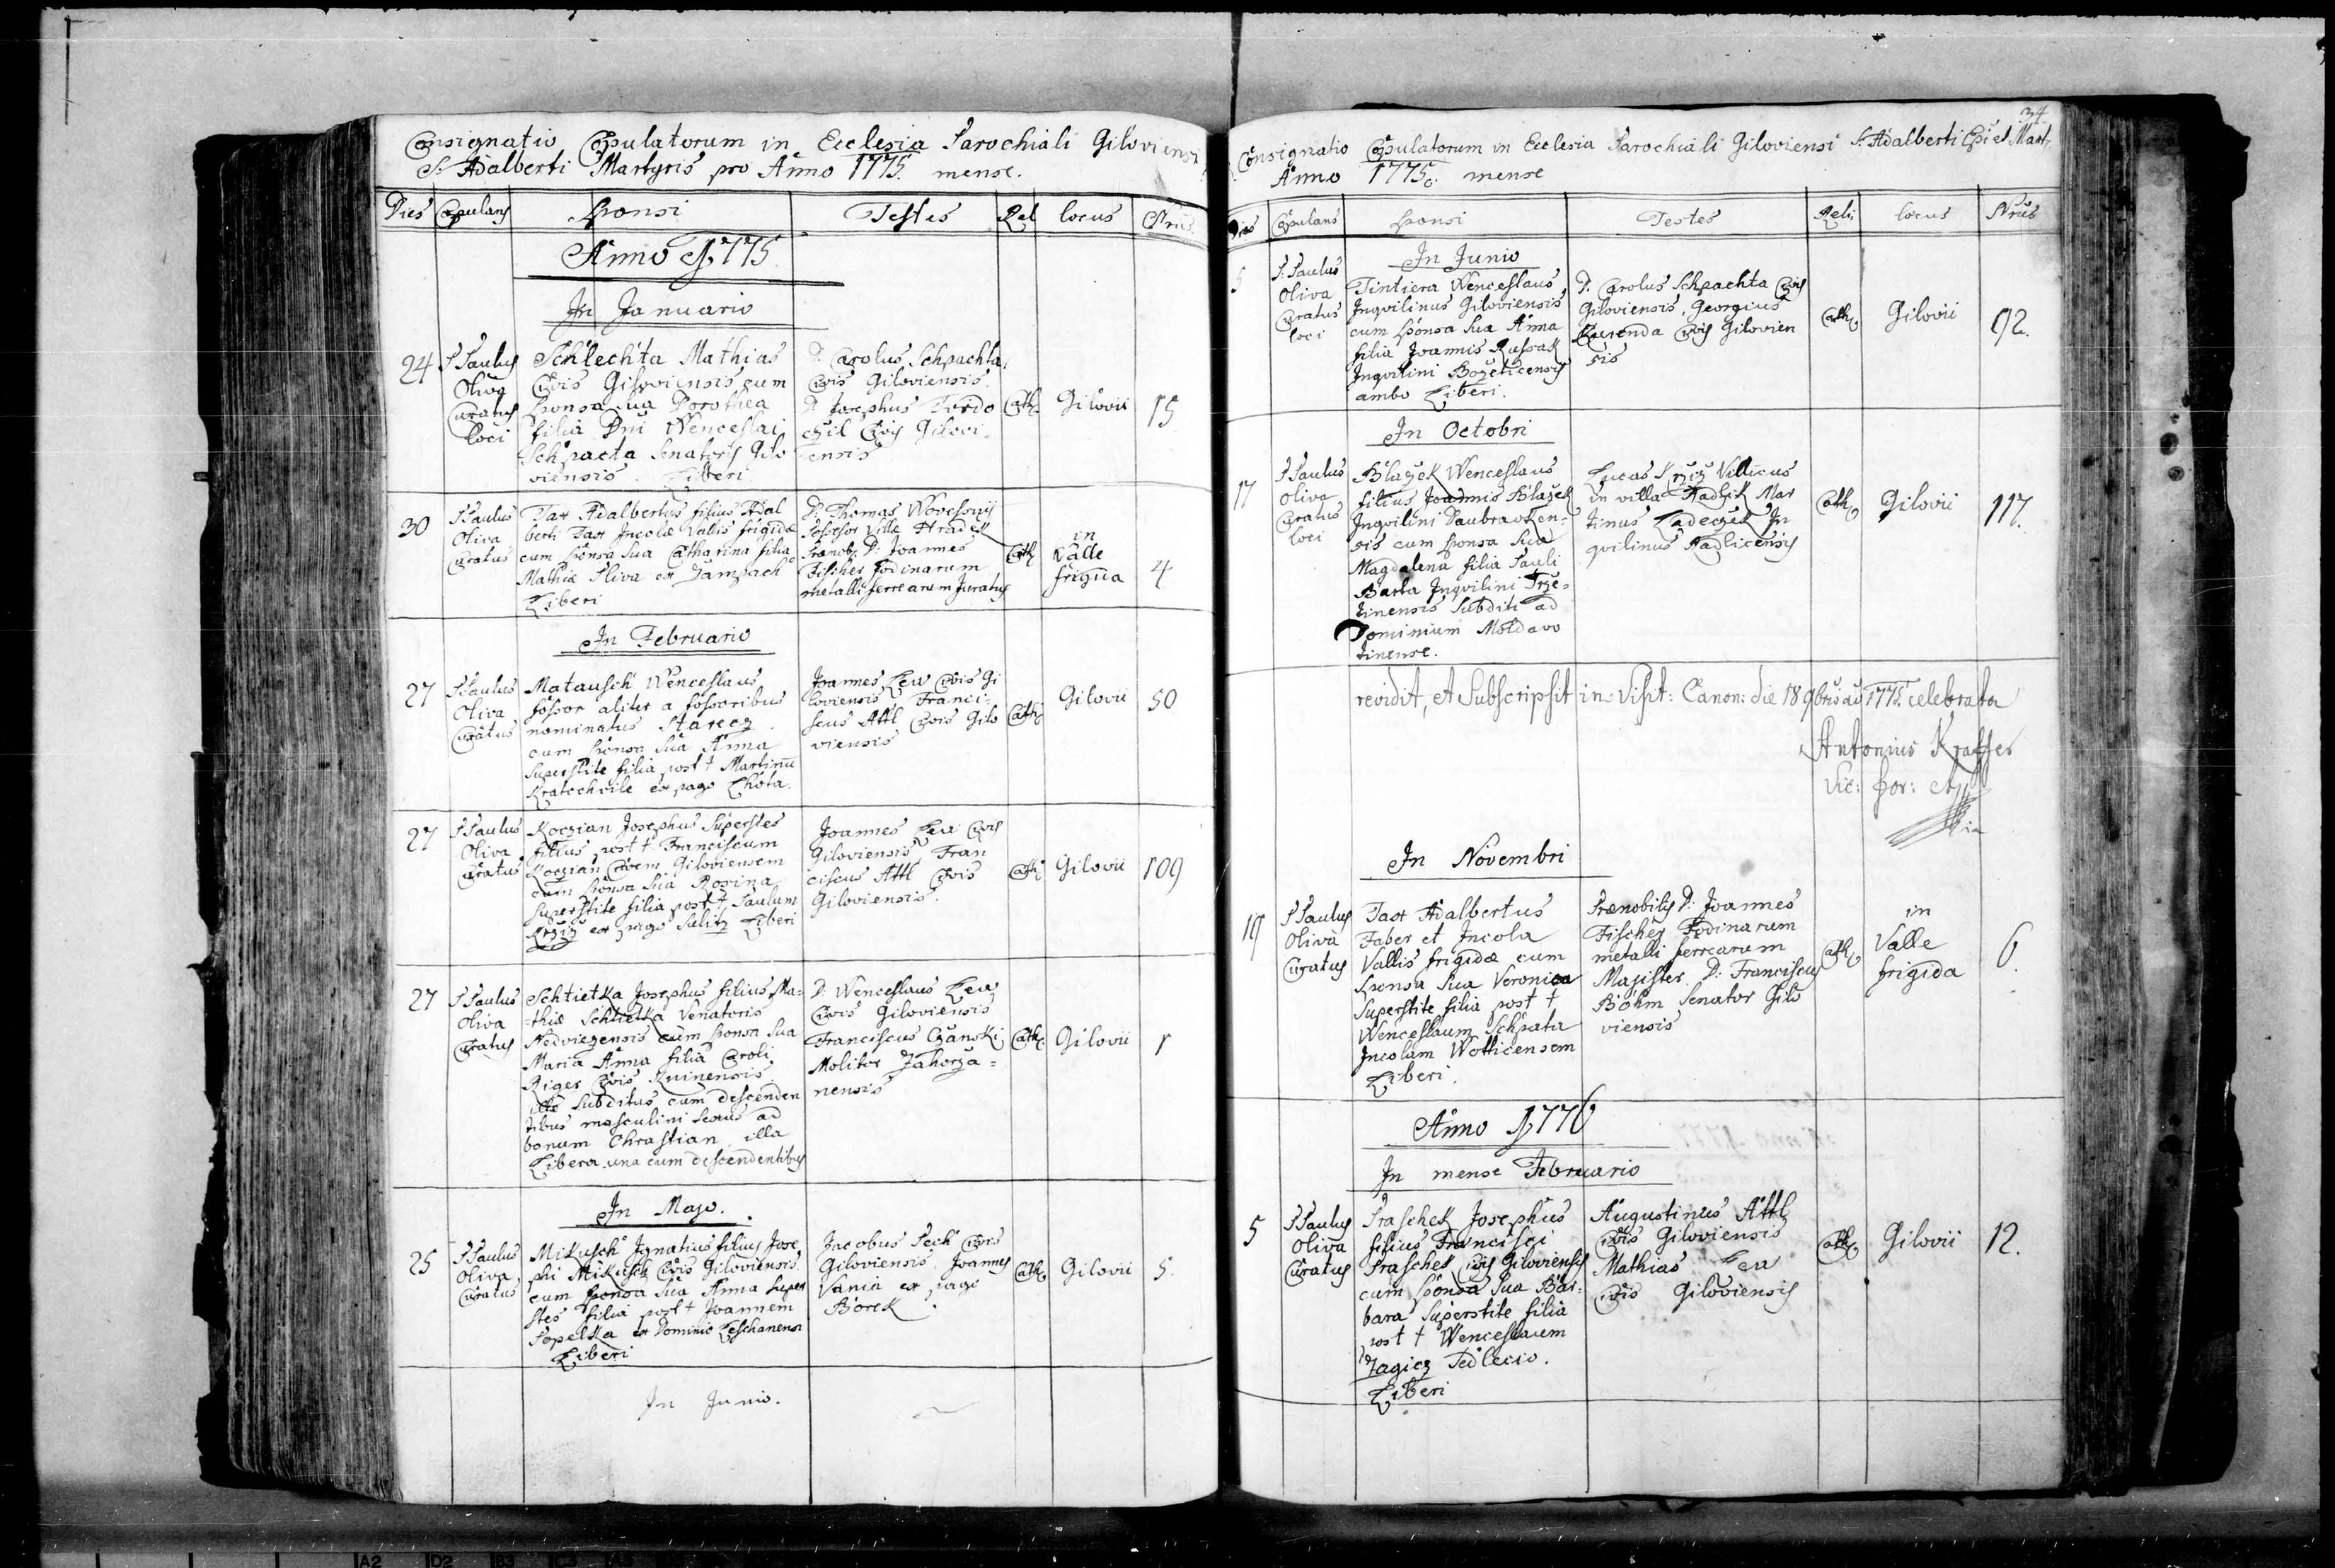 Consignatio Copulatorum in Ecclesia Parochiali Giloviensi
S. Adalberti Martyris pro Anno 1775. mense.
Dies Copulans Sponsi Testes Rel locus Nrus
Anno 1775
In Januario
24
P Paulus
Oliva
Curatus
loci
Schlechta Mathias
Civis Giloviensis cum
Sponsa sua Dorothea
filia Dni Wenceslai
Schpacta Senatoris Gilo
viensis. Liberi
D. Carolus Schpachta
Civis Giloviensis.
D. Josephus Tordo
czil Civis Gilovi
ensis
Cath.
Gilovii
15
30
P Paulus
Oliva
Curatus
Tax Adalbertus filius Adal
berti Tax Incolæ Vallis frigidæ
cum sponsa sua Catharina filia
Mathiæ Sliva ex Zampach
Liberi
D. Thomas
Possessor Villæ Hradek
Prænob. D: Joannes
Fischer fodinarum
metalli ferrearum Juratus
Cath
in
Valle
frigida
4
In Februario
27
P Paulus
Oliva
Curatus
Matausch Wenceslaus
fossor aliter a fossoribus
nominatus Starecz
cum sponsa sua Anna
superstite filia post † Martinum
Kratochvile ex pago Lhota.
Joannes Lew Civis Gi
loviensis Franci-
scus Attl Civis Gilo
viensis
Cath
Gilovii
50
27
P Paulus
Oliva
Curatus
Koczian Josephus Superstes
filius post † Franciscum
Koczian Civem Giloviensem
cum sponsa sua Rosina
superstite filia post † Paulum
Krziz ex pago Sulitz Liberi
Joannes Lew Civis
Giloviensis Fran
ciscus Attl Civis
Giloviensis.
Cath
Gilovii
109
27
P Paulus
Oliva
Curatus
Schtietka Josephus filius Ma-
thiæ Schtietka Venatoris
Nedviezensis cum sponsa sua
Maria Anna filia Caroli
Riger Civis Kninensis
ille Subditus cum descenden
tibus masculini sexus ad
bonum Chrastian, illa
Libera una cum descendentibus
D: Wenceslaus Lew
Civis Giloviensis
Franciscus Czanski
Molitor Zahorza-
nensis
Cath
Gilovii
1
In Majo.
25
P Paulus
Oliva
Curatus
Mikusch Ignatius filius Jose
phi Mikusch Civis Giloviensis.
cum sponsa sua Anna super
stes filia post † Joannem
Popelka ex Dominio Leschanensi
Liberi
Jacobus Pech Civis
Giloviensis, Joannes
Vania ex pago
Borek.
Cath
Gilovii
5.
In Junio.
34
Consignatio Copulatorum in Ecclesia Parochiali Giloviensi S. Adalberti Epi et Mart.
Anno 1775. mense
Dies Copulans Sponsi Testes Reli locus Nrus
In Junio
5
P. Paulus
Oliva
Curatus
loci
Tintiera Wenceslaus
Inqvilinus Giloviensis
cum sponsa sua Anna
filia Joannis
Inqvilini Bozeticensis
ambo Liberi.
D. Carolus Schpachta Civis
Giloviensis, Georgius
Civis Gilovien
sis
Cath
Gilovii
92.
In Octobri
17
P Paulus
Oliva
Curatus
loci
Blazek Wenceslaus
filius Joannis Blazek
Inqvilini Daubravken-
sis cum sponsa sua
Magdalena filia Pauli
Barta Inqvilini Trze-
tinensis Subditi ad
Dominium Moldavo
tinense.
Lucas Krziz Villicus
in villa Radlik Mar
tinus Ladeczek In
qvilinus Radlicensis
Cath
Gilovii
117.
revidit, et Subscripsit in Visit: Canon: die 18 9bris a͞o 1775. celebrata
Antonius
Vic: for:
In Novembri
19
P Paulus
Oliva
Curatus
Tax Adalbertus
Faber et Incola
Vallis frigidæ cum
Sponsa sua Veronica
superstite filia post †
Wenceslaum Schpata
Incolam Wotticensem
Liberi.
Prænobilis D: Joannes
Fischer Fodinarum
metalli ferrearum
Magister. D: Franciscus
Böhm Senator Gilo
viensis
Cath
in
Valle
frigida
6.
Anno 1776
In mense Februario
5
P Paulus
Oliva
Curatus
Praschek Josephus
filius Francisci
Praschek Civis Giloviensis
cum sponsa sua Bar-
bara superstite filia
post † Wenceslaum
Zagicz Sedlecio.
Liberi
Augustinus Attl
Civis Giloviensis
Mathias Lew
Civis Giloviensis
Cath
Gilovii
12.
A2 D2 B3